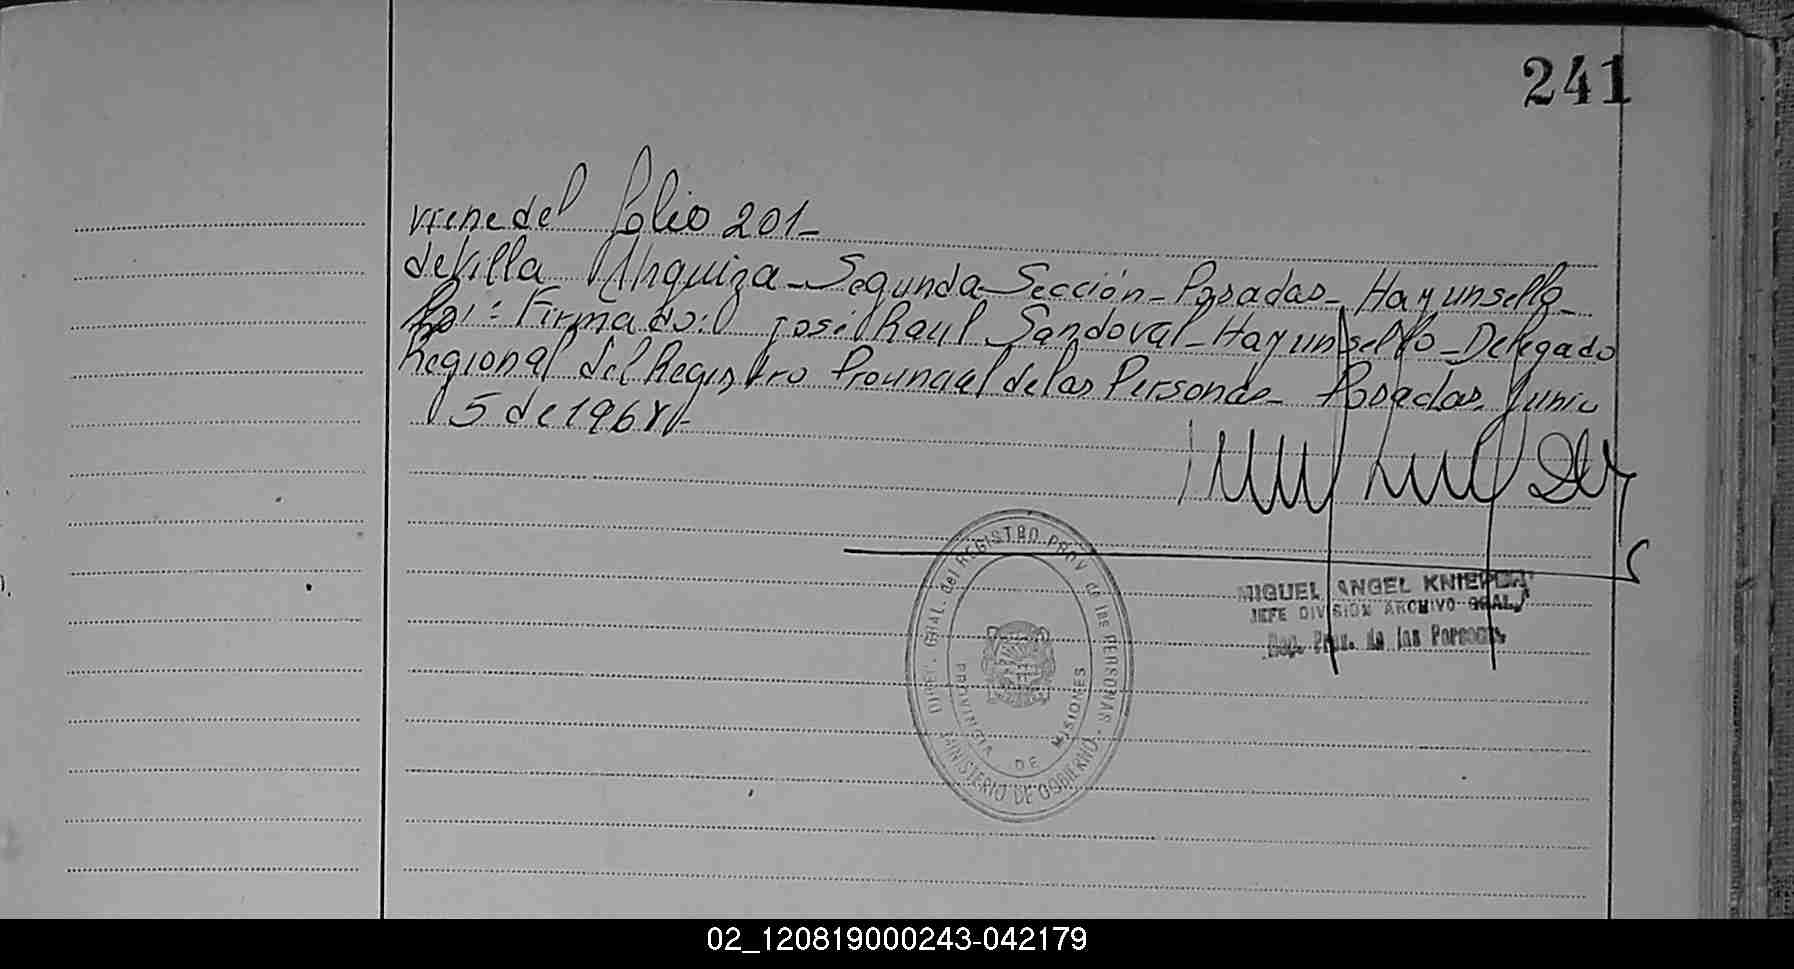 241
viene del folio 201-
de Villa Urquiza - Segunda Sección - Posadas - Hay un sello -
Firmado: José Raul Sandoval - Hay un sello - Delegado
Regional del Registro Provincial de las Personas - Posadas, Junio
5 de 1968 -
DIREC. GRAL. del REGISTRO PROV de las PERSONAS -
MINISTERIO DE GOBIERNO
PROVINCIA DE MISIONES
MIGUEL ANGEL
JEFE DIVISION ARCHIVO GRAL.
Reg. Prov. de las Personas
02_120819000243-042179